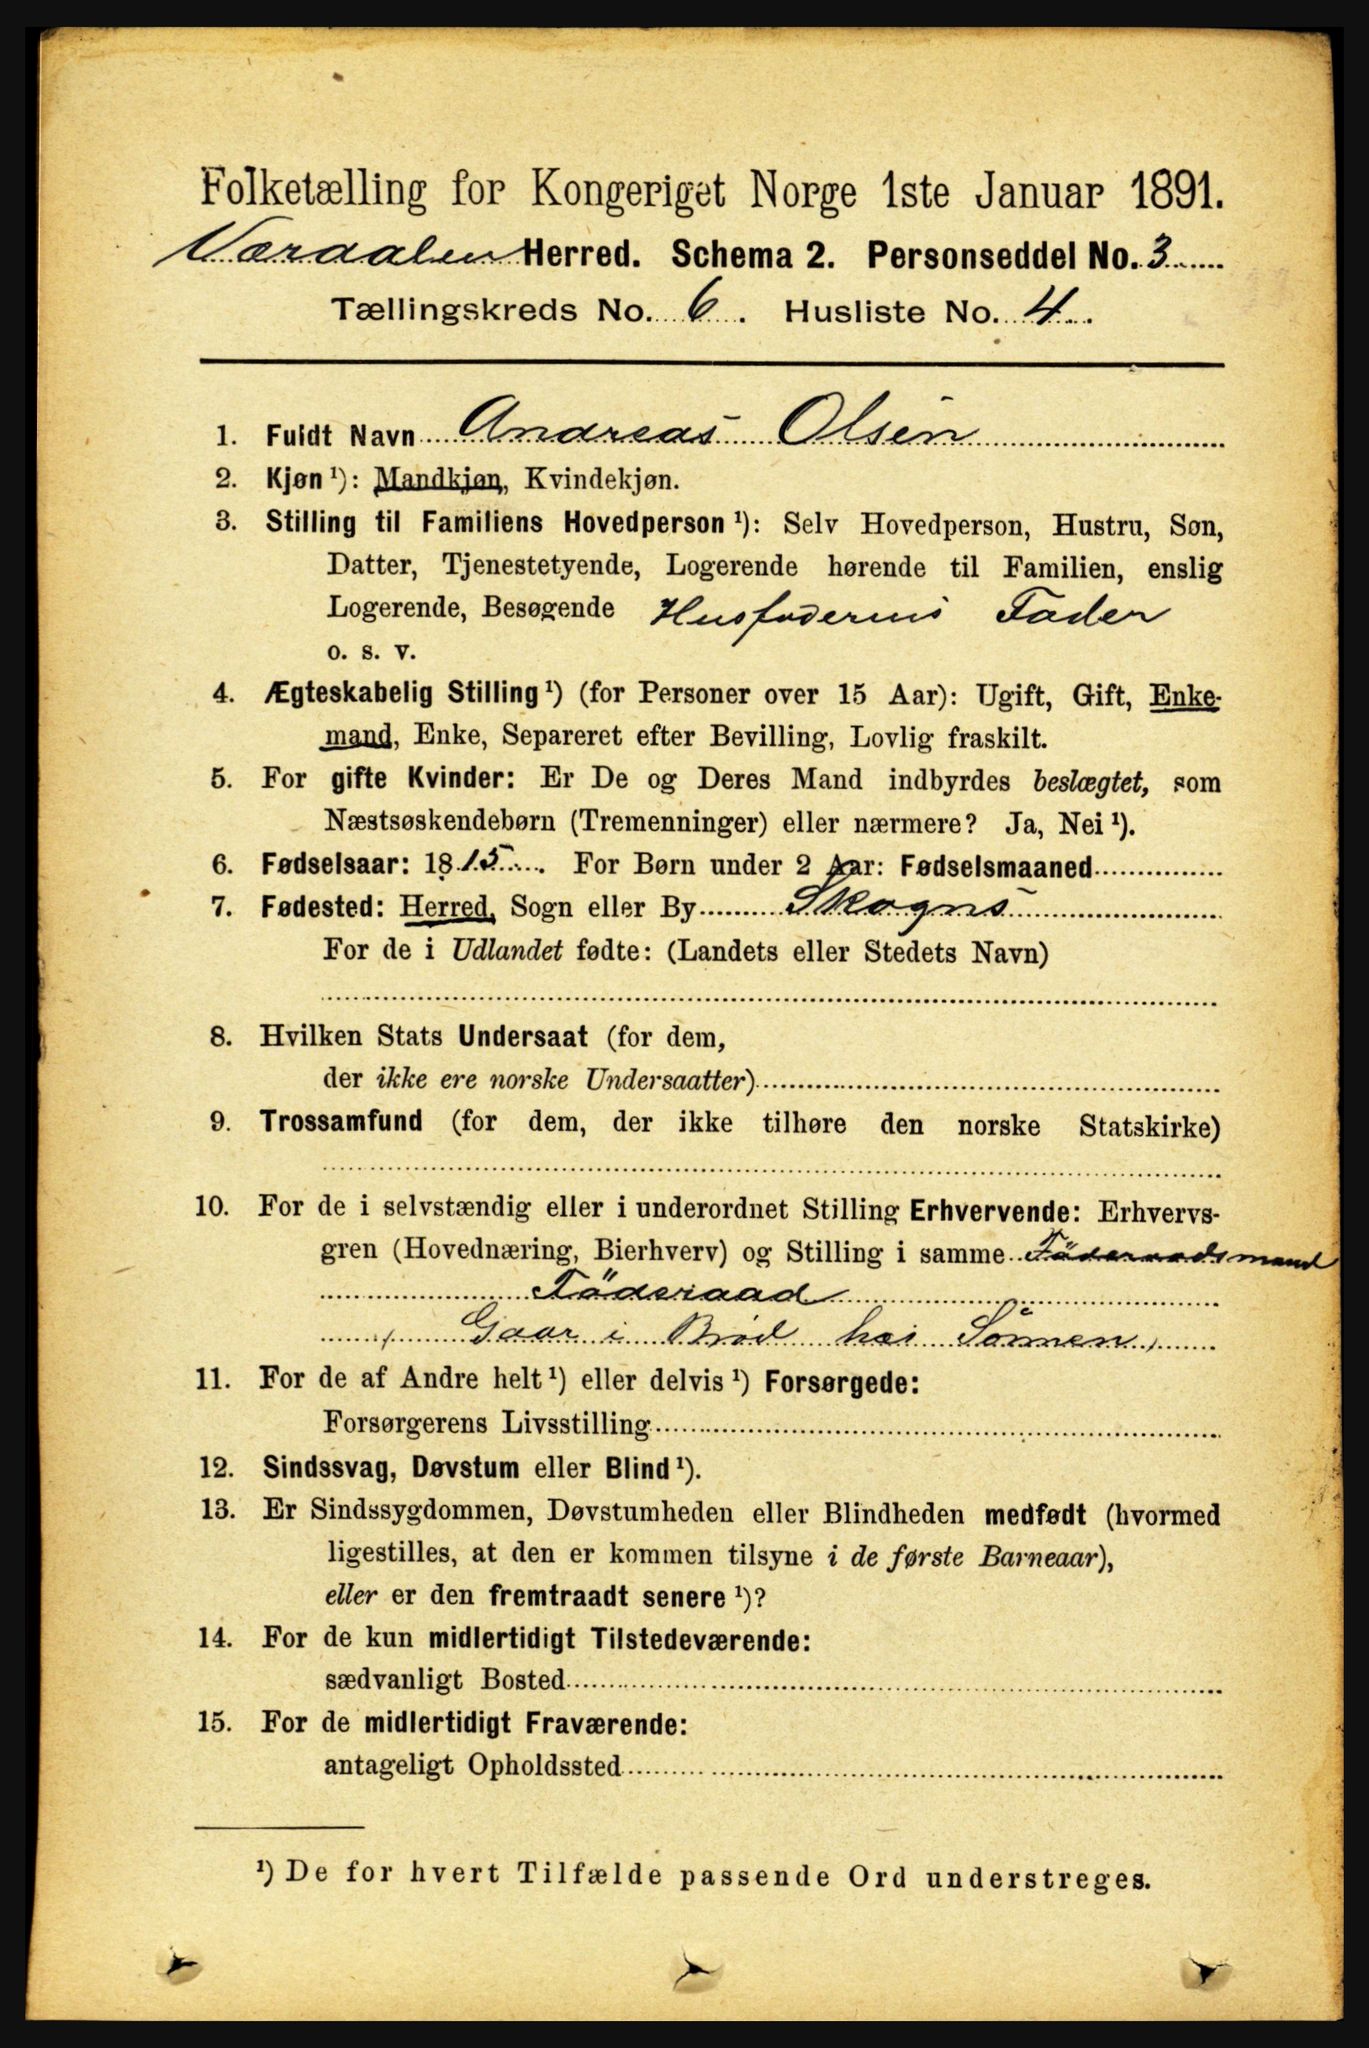 Folketælling for Kongeriget Norge 1ste Januar 1891.
Værdalen Herred. Schema 2. Personseddel No. 3
Tællingskreds No. 6. Husliste No. 4.
1. Fuldt Navn Andreas Olsen
2. Kjøn ¹): Mandkjøn, Kvindekjøn.
3. Stilling til Familiens Hovedperson ¹): Selv Hovedperson, Hustru, Søn,
Datter, Tjenestetyende, Logerende hørende til Familien, enslig
Logerende, Besøgende Husfaderens Fader
o. s. v.
4. Ægteskabelig Stilling ¹) (for Personer over 15 Aar): Ugift, Gift, Enke-
mand, Enke, Separeret efter Bevilling, Lovlig fraskilt.
5. For gifte Kvinder: Er De og Deres Mand indbyrdes beslægtet, som
Næstsøskendebørn (Tremenninger) eller nærmere? Ja, Nei ¹).
6. Fødselsaar: 1815. For Børn under 2 Aar: Fødselsmaaned
7. Fødested: Herred, Sogn eller By Skogns
For de i Udlandet fødte: (Landets eller Stedets Navn)
8. Hvilken Stats Undersaat (for dem,
der ikke ere norske Undersaatter)
9. Trossamfund (for dem, der ikke tilhøre den norske Statskirke)
10. For de i selvstændig eller i underordnet Stilling Erhvervende: Erhvervs-
gren (Hovednæring, Bierhverv) og Stilling i samme Föderaadsmand
Föderaad
( Gaar i Brød hos Sönnen )
11. For de af Andre helt ¹) eller delvis ¹) Forsørgede:
Forsørgerens Livsstilling
12. Sindssvag, Døvstum eller Blind ¹).
13. Er Sindssygdommen, Døvstumheden eller Blindheden medfødt (hvormed
ligestilles, at den er kommen tilsyne i de første Barneaar),
eller er den fremtraadt senere ¹)?
14. For de kun midlertidigt Tilstedeværende:
sædvanligt Bosted
15. For de midlertidigt Fraværende:
antageligt Opholdssted
¹) De for hvert Tilfælde passende Ord understreges.